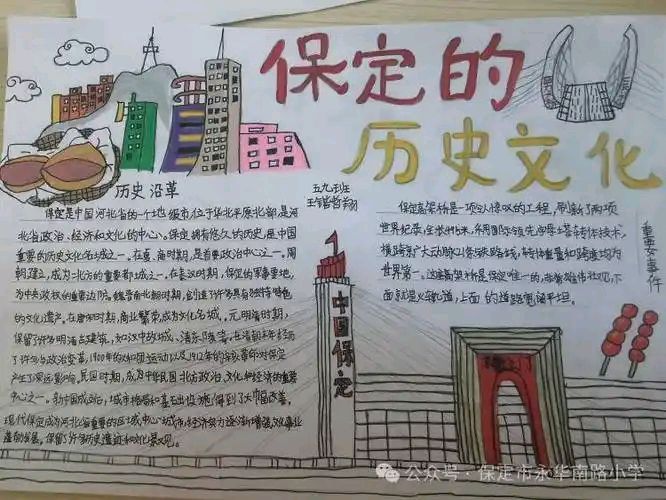 保定的
历史文化
历史沿革
五九班
保定是中国河北省的一个地级市,位于华北平原北部,是河
北省政治、经济和文化的中心。保定拥有悠久的历史,是中国
重要的历史文化名城之一。在夏、商时期,是首要政治中心之一。周
朝建立,成为北方的重要都城之一。在秦汉时期,保定的军事要地,
为中央政权的重要边防。魏晋南北朝时期,创造了许多具有独特特色
的文化遗产。在唐宋时期,商业繁荣,成为文化名城。元明清时期,
保留了许多明清古建筑,
了许多政治变革,1900年的义和团运动以及1912年的辛亥革命对保定
产生了深远影响。民国时期,成为中华民国北方政治、文化和经济的重要
中心之一。新中国成立后,城市格局和基础设施得到了大幅改善。
现代保定成为河北省重要的区域中心城市,经济势力逐渐增强,
蓬勃发展。保留了许多历史遗迹和文化景观。
重要事件
保定高架桥是一项令人惊叹的工程,刷新了两项
世界纪录,全长
横跨京广大动脉
世界第一。这座高架桥是保定唯一的,
面就是火车道,上面的道路宽阔平坦。
中国保定
公众号·保定市永华南路小学